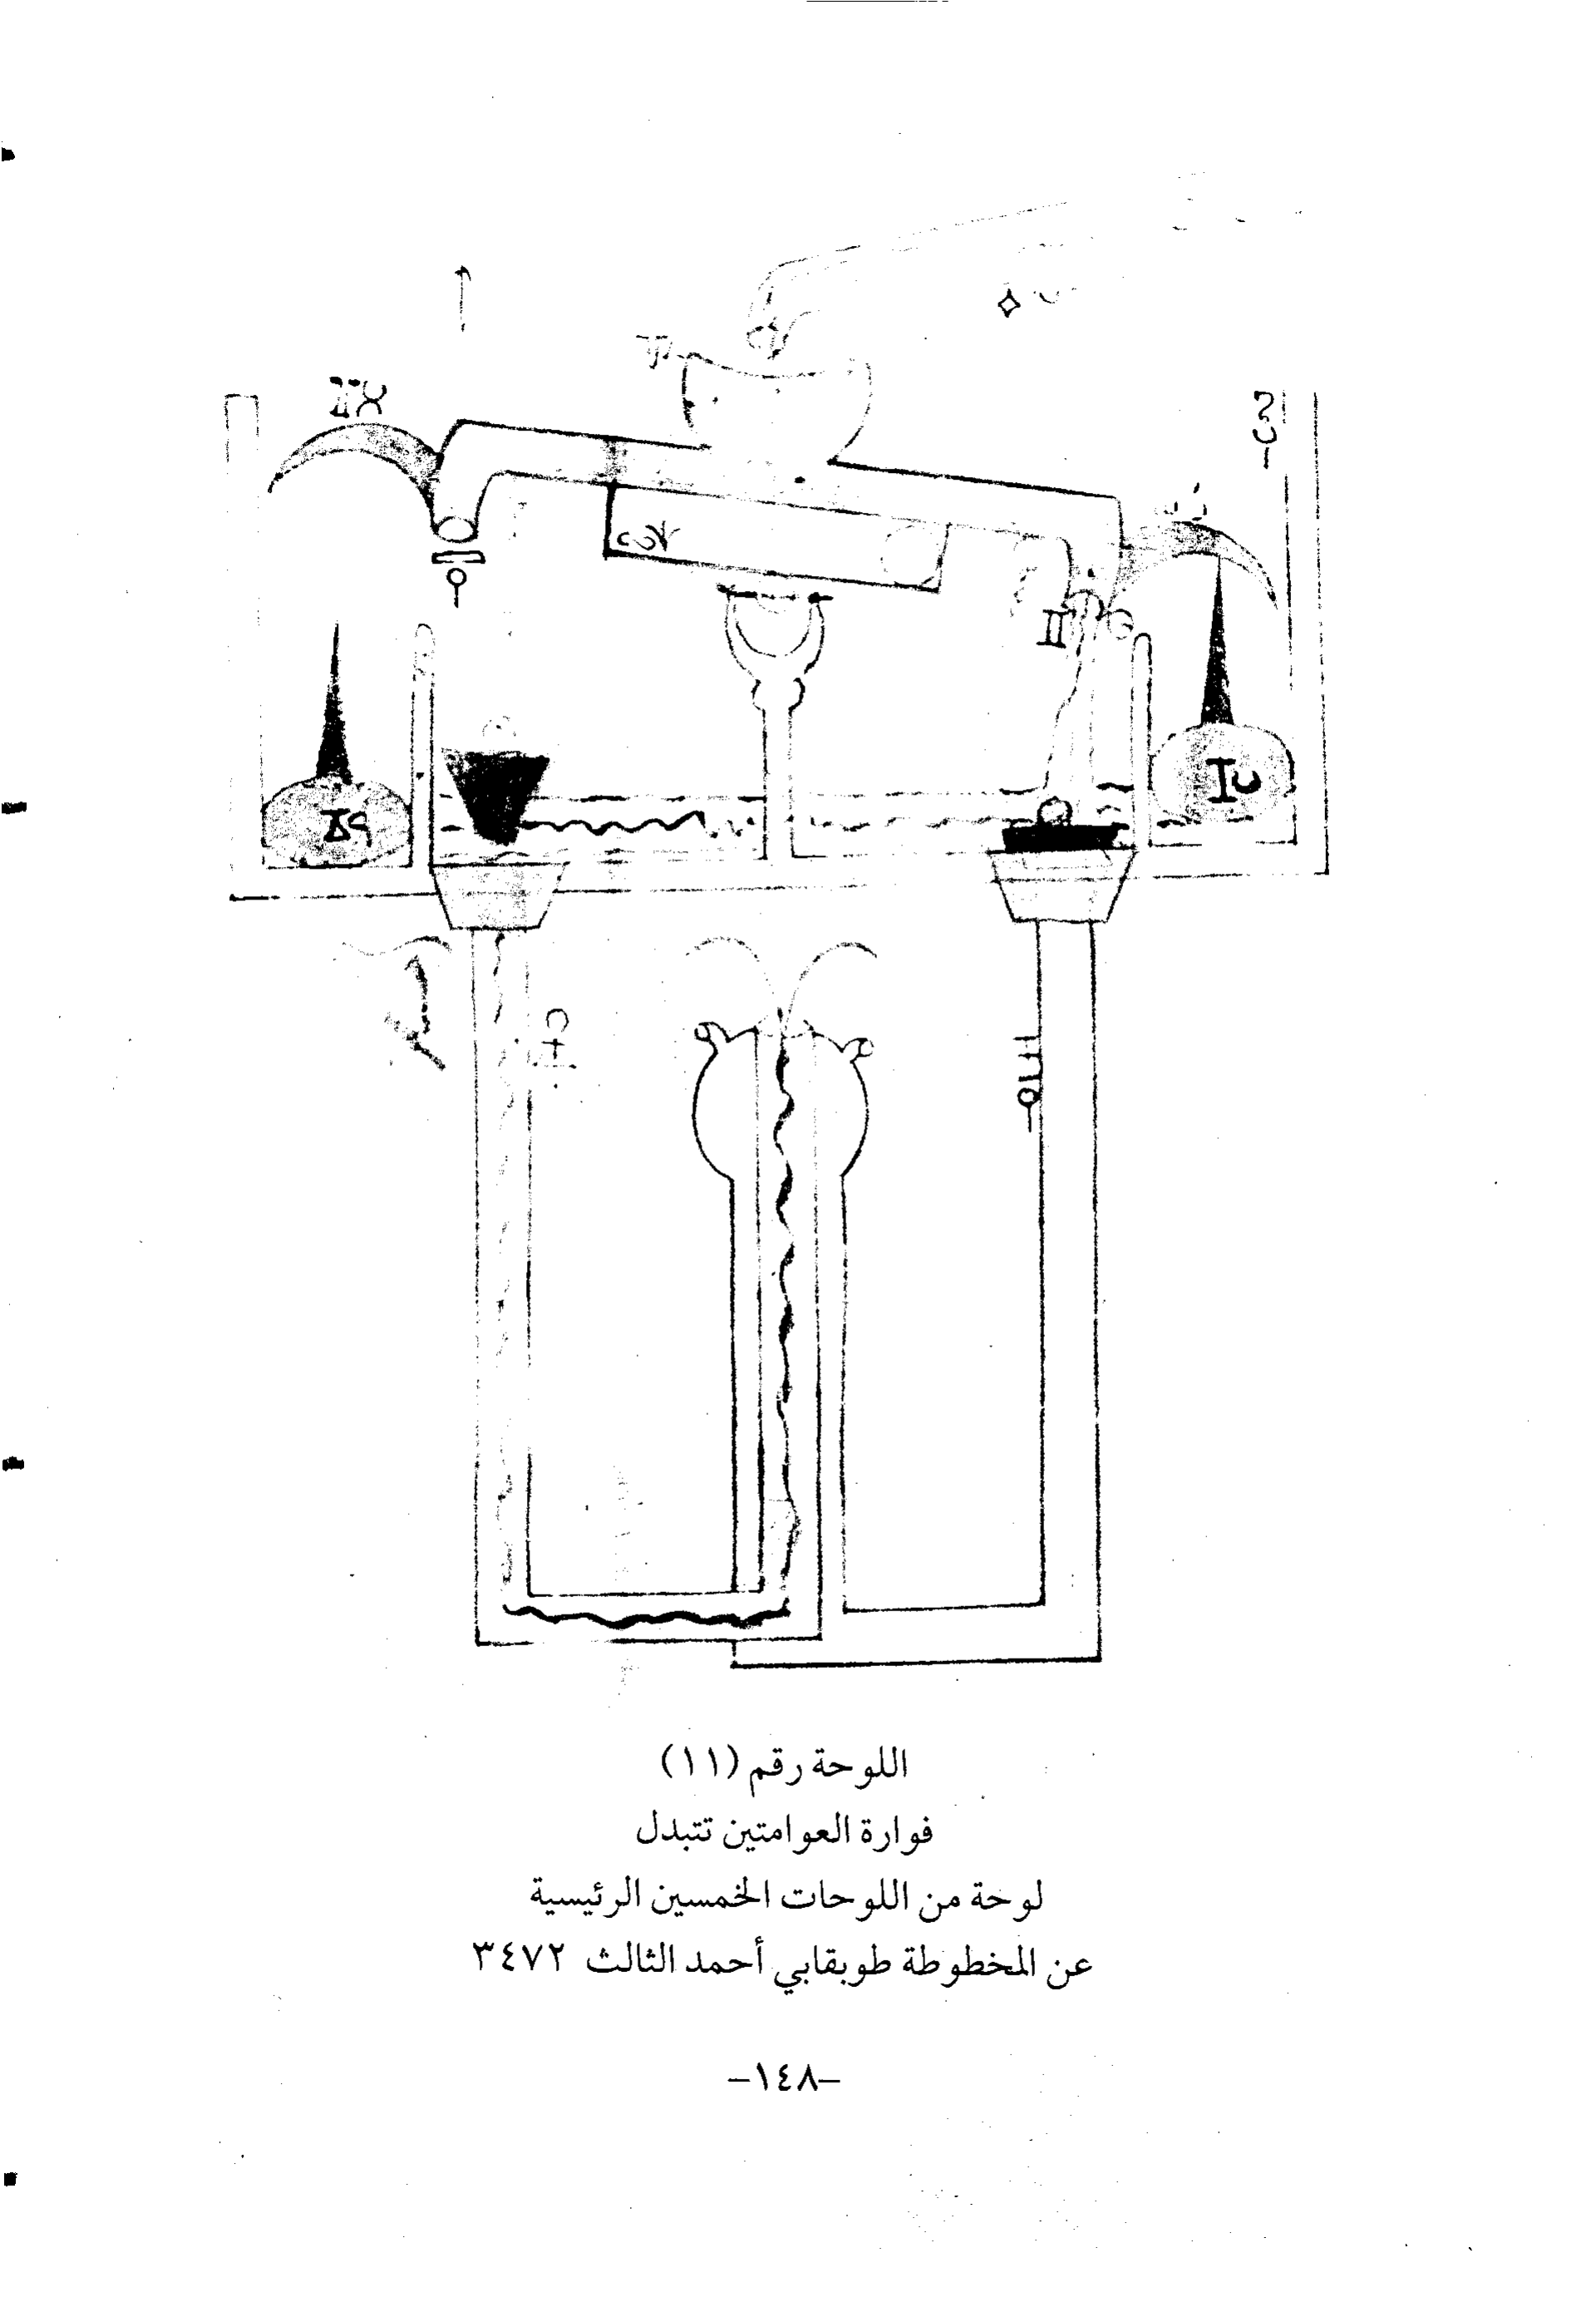 اللوحة رقم (١١)
فوارة العوامتين تتبدل
لوحة من اللوحات الخمسين الرئيسية
عن المخطوطة طوبقابي أحمد الثالث ٣٤٧٢
–١٤٨–